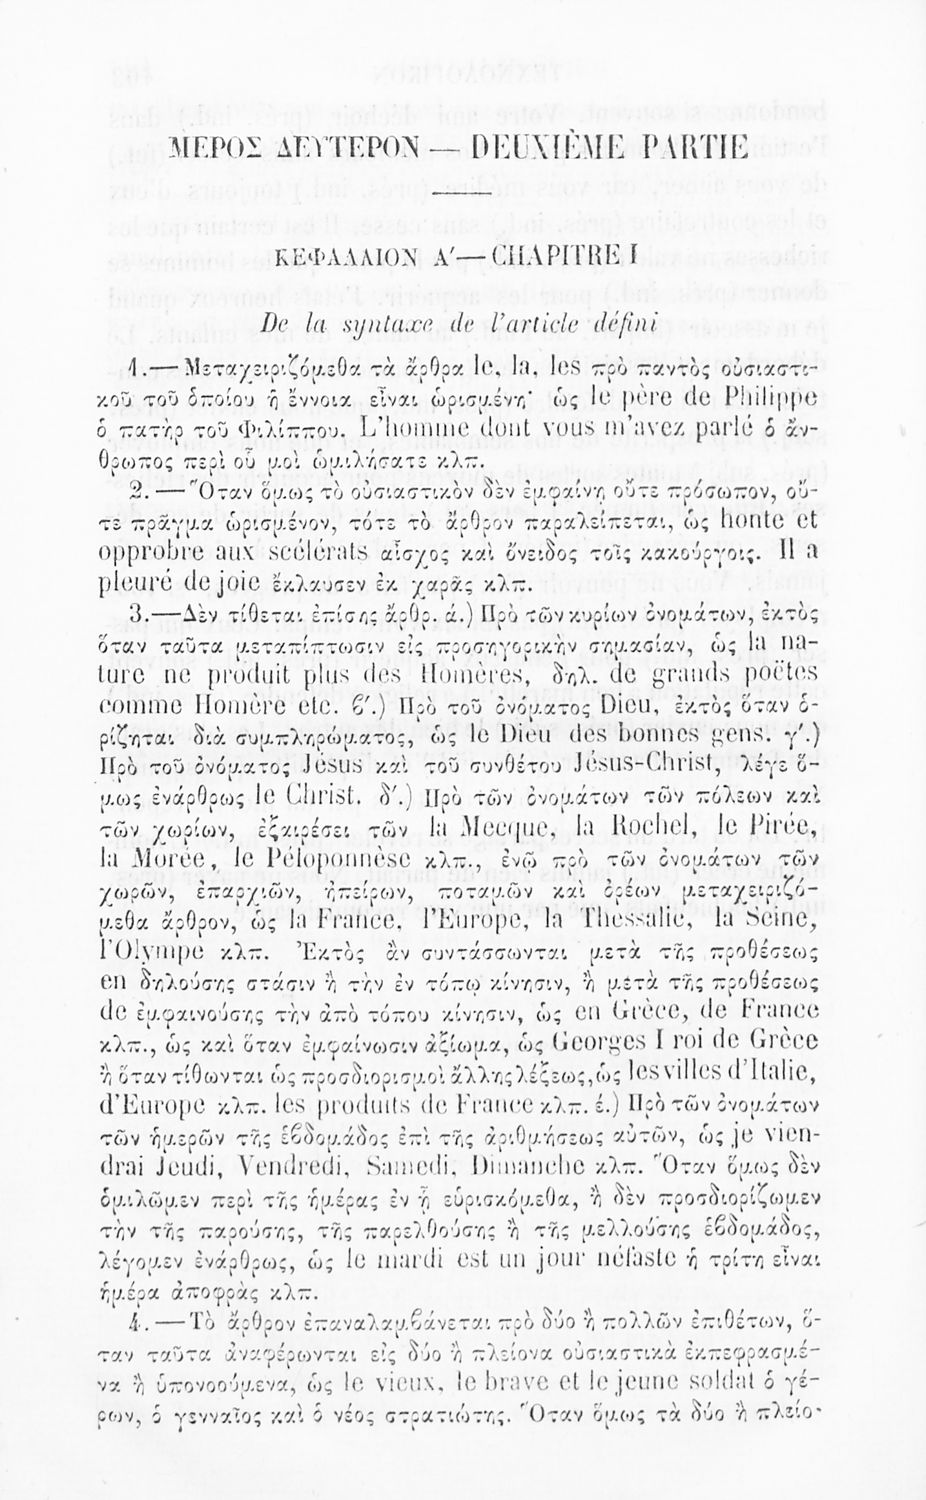 ΜΕΡΟΣ ΔΕΥΤΕΡΟΝ — DEUXIÈME PARTIE
ΚΕΦΑΛΑΙΟΝ Α΄ — CHAPITRE I
De la syntaxe de l'article défini
1. — Μεταχειριζόμεθα τὰ ἄρθρα le, la, les πρὸ παντὸς οὐσιαστι-
κοῦ τοῦ ὁποίου ἡ ἔννοια εἶναι ὡρισμένη· ὡς le père de Philippe
ὁ πατὴρ τοῦ Φιλίππου. L'homme dont vous m'avez parlé ὁ ἄν-
θρωπος περὶ οὗ μοὶ ὡμιλήσατε κλπ.
2. — Ὅταν ὅμως τὸ οὐσιαστικὸν δὲν ἐμφαίνῃ οὔτε πρόσωπον, οὔ-
τε πρᾶγμα ὡρισμένον, τότε τὸ ἄρθρον παραλείπεται, ὡς honte et
opprobre aux scélérats αἶσχος καὶ ὄνειδος τοῖς κακούργοις. Il a
pleuré de joie ἔκλαυσεν ἐκ χαρᾶς κλπ.
3. — Δὲν τίθεται ἐπίσης ἄρθρ. ά.) Πρὸ τῶν κυρίων ὀνομάτων, ἐκτὸς
ὅταν ταῦτα μεταπίπτωσιν εἰς προσηγορικὴν σημασίαν, ὡς la na-
ture ne produit plus des Homères, δηλ. de grands poëtes
comme Homère etc. ϐ΄.) Πρὸ τοῦ ὀνόματος Dieu, ἐκτὸς ὅταν ὁ-
ρίζηται διὰ συμπληρώματος, ὡς le Dieu des bonnes gens. γ΄.)
Πρὸ τοῦ ὀνόματος Jésus καὶ τοῦ συνθέτου Jésus-Christ, λέγε ὅ-
μως ἐνάρθρως le Christ. δ΄.) Πρὸ τῶν ὀνομάτων τῶν πόλεων καὶ
τῶν χωρίων, ἐξαιρέσει τῶν la Mecque, la Rochel, le Pirée,
la Morée, le Péloponnèse κλπ., ἐνῷ πρὸ τῶν ὀνομάτων τῶν
χωρῶν, ἐπαρχιῶν, ἠπείρων, ποταμῶν καὶ ὀρέων μεταχειριζό-
μεθα ἄρθρον, ὡς la France, l'Europe, la Thessalie, la Seine,
l'Olympe κλπ. Ἐκτὸς ἂν συντάσσωνται μετὰ τῆς προθέσεως
en δηλούσης στάσιν ἢ τὴν ἐν τόπῳ κίνησιν, ἢ μετὰ τῆς προθέσεως
de ἐμφαινούσης τὴν ἀπὸ τόπου κίνησιν, ὡς en Grèce, de France
κλπ., ὡς καὶ ὅταν ἐμφαίνωσιν ἀξίωμα, ὡς Georges I roi de Grèce
ἢ ὅταν τίθωνται ὡς προσδιορισμοὶ ἄλλης λέξεως, ὡς les villes d'Italie,
d'Europe κλπ. les produits de France κλπ. έ.) Πρὸ τῶν ὀνομάτων
τῶν ἡμερῶν τῆς ἑϐδομάδος ἐπὶ τῆς ἀριθμήσεως αὐτῶν, ὡς je vien-
drai Jeudi, Vendredi, Samedi, Dimanche κλπ. Ὅταν ὅμως δὲν
ὁμιλῶμεν περὶ τῆς ἡμέρας ἐν ᾗ εὑρισκόμεθα, ἢ δὲν προσδιορίζωμεν
τὴν τῆς παρούσης, τῆς παρελθούσης ἢ τῆς μελλούσης ἑϐδομάδος,
λέγομεν ἐνάρθρως, ὡς le mardi est un jour néfaste ἡ τρίτη εἶναι
ἡμέρα ἀποφρὰς κλπ.
4. — Τὸ ἄρθρον ἐπαναλαμϐάνεται πρὸ δύο ἢ πολλῶν ἐπιθέτων, ὅ-
ταν ταῦτα ἀναφέρωνται εἰς δύο ἢ πλείονα οὐσιαστικὰ ἐκπεφρασμέ-
να ἢ ὑπονοούμενα, ὡς le vieux, le brave et le jeune soldat ὁ γέ-
ρων, ὁ γενναῖος καὶ ὁ νέος στρατιώτης. Ὅταν ὅμως τὰ δύο ἢ πλείο-